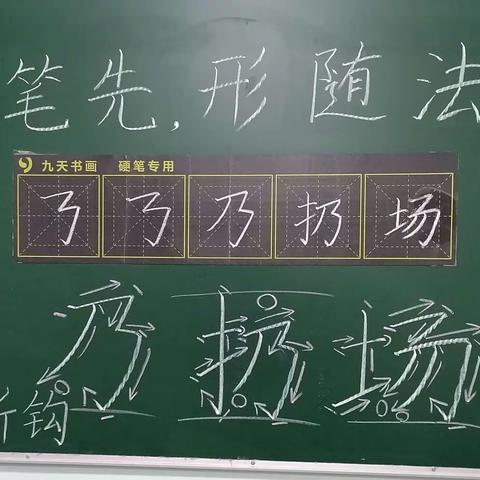 笔先,形随法
九天书画 硬笔专用
㇡ ㇡ 乃 扔 场
乃 扔 场
钩